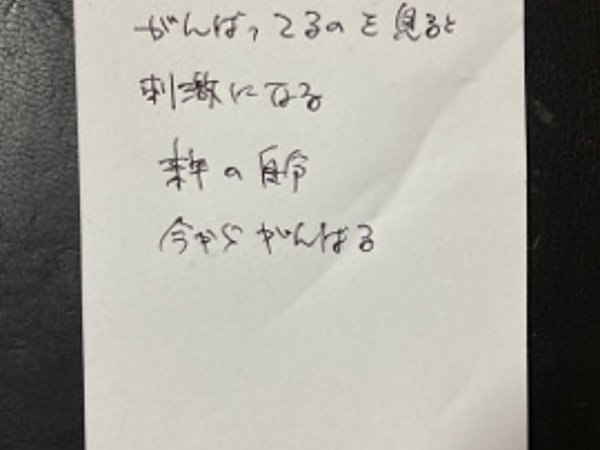 がんばってるのを見ると
刺激になる
来年の自分
今からがんばる